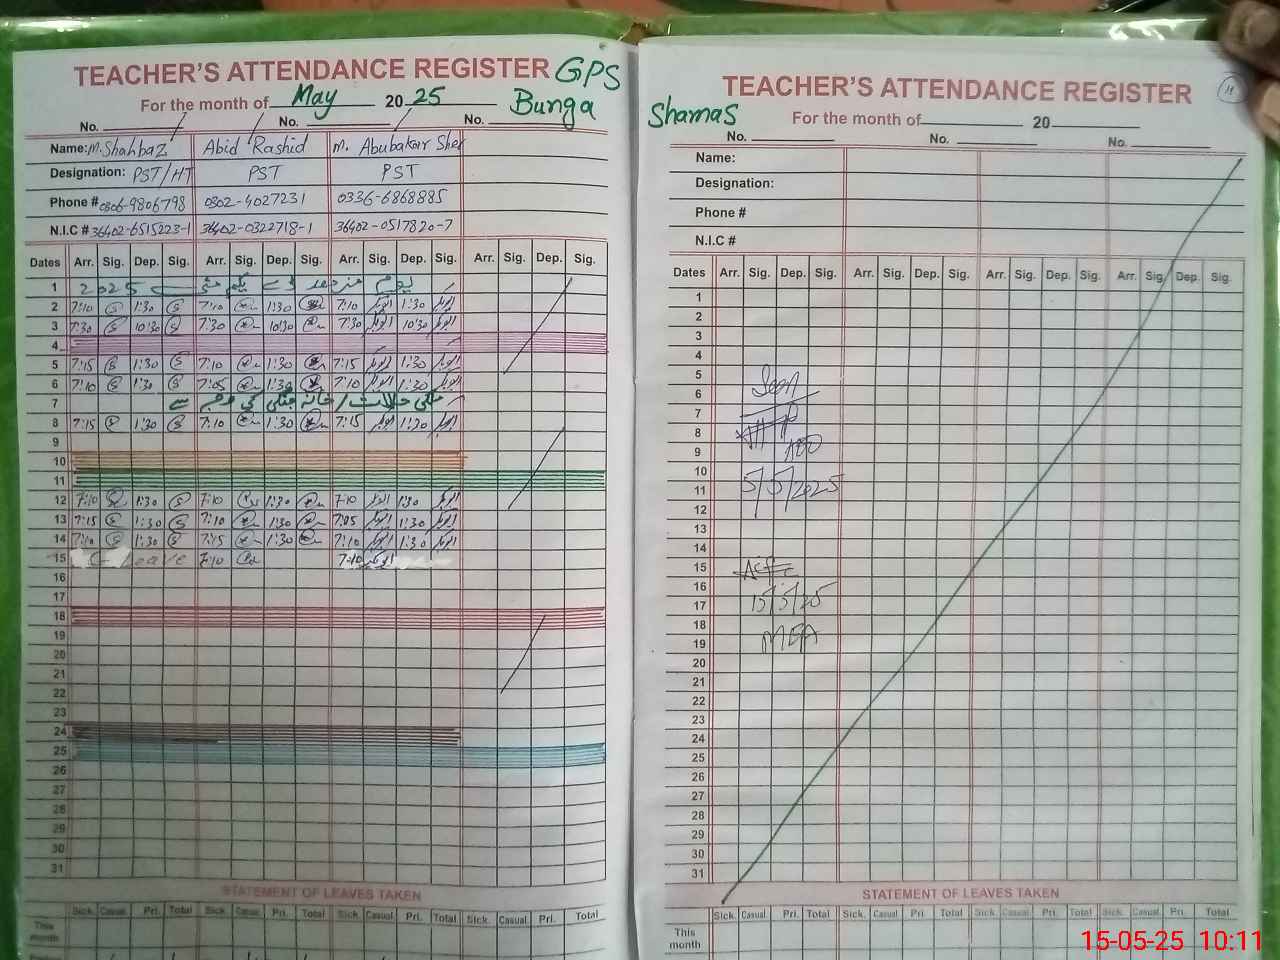 TEACHER'S ATTENDANCE REGISTER GPS
For the month of May 2025 Bunga
No. No. No.
Name: M. Shahbaz Abid Rashid M. Abubakar Sher
Designation: PST/HT PST PST
Phone # 0306-9806798 0302-4027231 0336-6868885
N.I.C # 36402-6515223-1 36402-0322718-1 36402-0517820-7
Dates Arr. Sig. Dep. Sig. Arr. Sig. Dep. Sig. Arr. Sig. Dep. Sig. Arr. Sig. Dep. Sig.
1 2025 یکم مئی
2 7:10 1:30 7:10 1:30 7:10 1:30
3 7:30 10:30 7:30 10:30 7:30 10:30
4
5 7:15 1:30 7:10 1:30 7:15 1:30
6 7:10 1:30 7:05 1:30 7:10 1:30
7 ملکی حالات / کی وجہ سے
8 7:15 1:30 7:10 1:30 7:15 1:30
9
10
11
12 7:10 1:30 7:10 1:30 7:10 1:30
13 7:15 1:30 7:10 1:30 7:05 1:30
14 7:10 1:30 7:15 1:30 7:10 1:30
15 Leave 7:10 7:10
16
17
18
19
20
21
22
23
24
25
26
27
28
29
30
31
STATEMENT OF LEAVES TAKEN
Sick. Casual. Pri. Total Sick. Casual. Pri. Total Sick. Casual. Pri. Total Sick. Casual. Pri. Total
This month
TEACHER'S ATTENDANCE REGISTER 11
Shamas For the month of 20
No. No. No.
Name:
Designation:
Phone #
N.I.C #
Dates Arr. Sig. Dep. Sig. Arr. Sig. Dep. Sig. Arr. Sig. Dep. Sig. Arr. Sig. Dep. Sig.
1
2
3
4
5
6 Seen
7
8
9
10
11 5/5/2025
12
13
14
15
16
17 15/5/25
18
19 MEA
20
21
22
23
24
25
26
27
28
29
30
31
STATEMENT OF LEAVES TAKEN
Sick. Casual. Pri. Total Sick. Casual. Pri. Total Sick. Casual. Pri. Total Sick. Casual. Pri. Total
This month
15-05-25 10:11